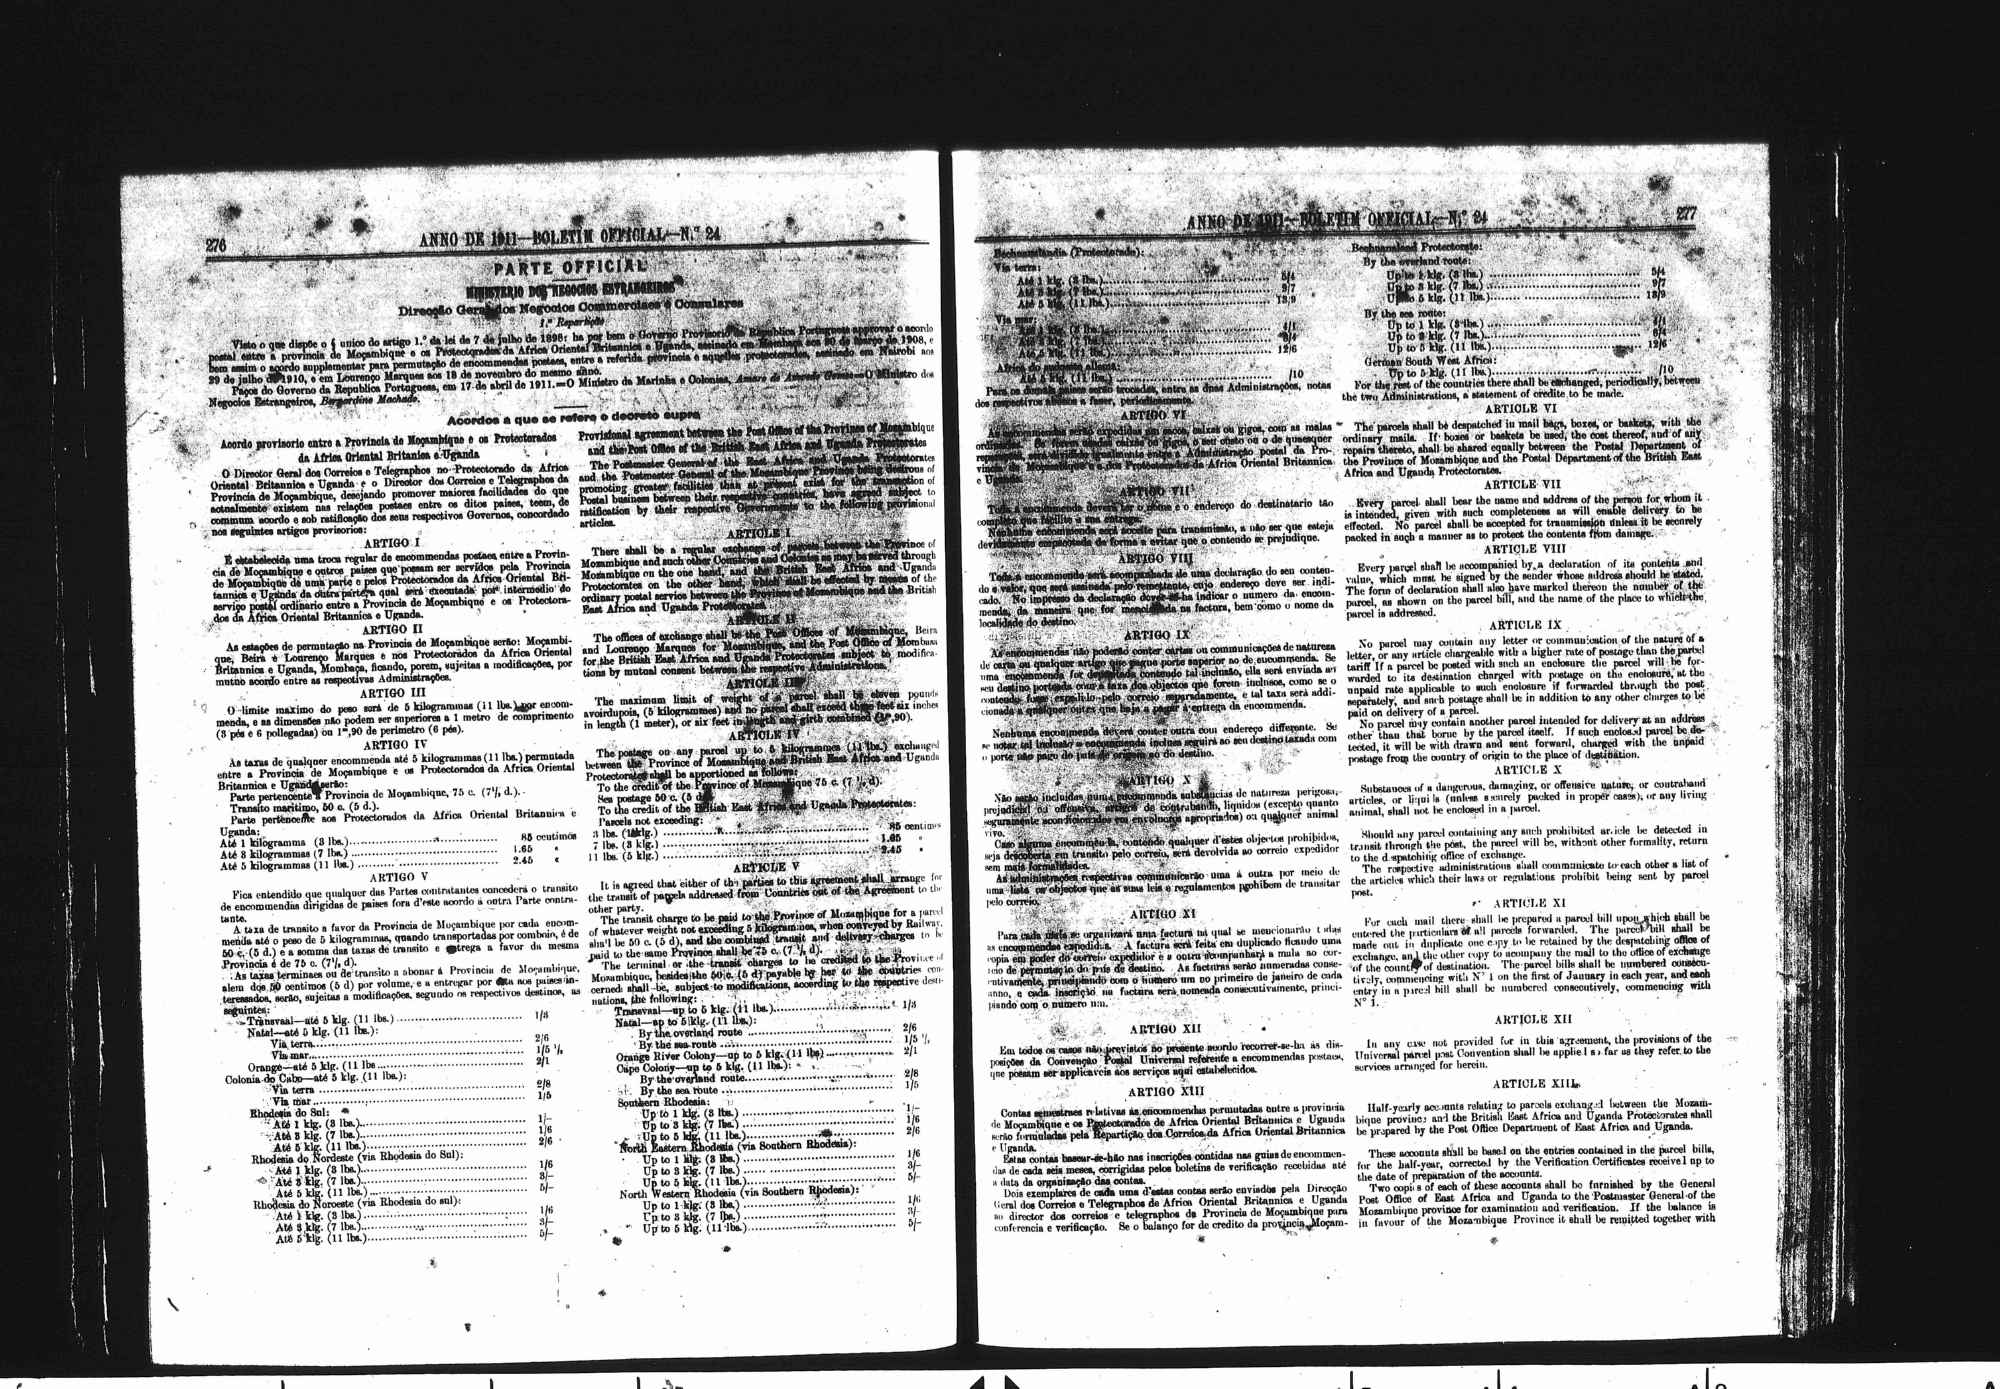 276
ANNO DE 1911—BOLETIM OFFICIAL—N.º 24
PARTE OFFICIAL
MINISTERIO DOS NEGOCIOS ESTRANGEIROS
Direcção Geral dos Negocios Commerciaes e Consulares
1.ª Repartição
Visto o que dispõe o § unico do artigo 1.º da lei de 7 de julho de 1898: ha por bem o Governo Provisorio da Republica Portuguesa approvar o acordo
postal entre a provincia de Moçambique e os Protectorados da Africa Oriental Britannica e Uganda, assinado em Mombaça aos 30 de março de 1908, e
bem assim o acordo supplementar para permutação de encommendas postaes, entre a referida provincia e aquelles protectorados, assinado em Nairobi aos
29 de julho de 1910, e em Lourenço Marques aos 18 de novembro do mesmo anno.
Paços do Governo da Republica Portuguesa, em 17 de abril de 1911.=O Ministro da Marinha e Colonias, Amaro de Azevedo Gomes=O Ministro dos
Negocios Estrangeiros, Bernardino Machado.
Acordos a que se refere o decreto supra
Acordo provisorio entre a Provincia de Moçambique e os Protectorados
da Africa Oriental Britanica e Uganda
O Director Geral dos Correios e Telegraphos no Protectorado da Africa
Oriental Britannica e Uganda e o Director dos Correios e Telegraphos da
Provincia de Moçambique, desejando promover maiores facilidades do que
actualmente existem nas relações postaes entre os ditos paises, teem, de
commum acordo e sob ratificação dos seus respectivos Governos, concordado
nos seguintes artigos provisorios:
ARTIGO I
É estabelecida uma troca regular de encommendas postaes entre a Provin-
cia de Moçambique e outros paises que possam ser servidos pela Provincia
de Moçambique de uma parte e pelos Protectorados da Africa Oriental Bri-
tannica e Uganda da outra parte, a qual será executada por intermedio do
serviço postal ordinario entre a Provincia de Moçambique e os Protectora-
dos da Africa Oriental Britannica e Uganda.
ARTIGO II
As estações de permutação na Provincia de Moçambique serão: Moçambi-
que, Beira e Lourenço Marques e nos Protectorados da Africa Oriental
Britannica e Uganda, Mombaça, ficando, porem, sujeitas a modificações, por
mutuo acordo entre as respectivas Administrações.
ARTIGO III
O limite maximo do peso será de 5 kilogrammas (11 lbs.) por encom-
menda, e as dimensões não podem ser superiores a 1 metro de comprimento
(3 pés e 6 pollegadas) ou 1ᵐ,90 de perimetro (6 pés).
ARTIGO IV
As taxas de qualquer encommenda até 5 kilogrammas (11 lbs.) permutada
entre a Provincia de Moçambique e os Protectorados da Africa Oriental
Britannica e Uganda serão:
Parte pertencente á Provincia de Moçambique, 75 c. (7½ d.).
Transito maritimo, 50 c. (5 d.).
Parte pertencente aos Protectorados da Africa Oriental Britannica e
Uganda:
Até 1 kilogramma (3 lbs.) 85 centimos
Até 3 kilogrammas (7 lbs.) 1.65 «
Até 5 kilogrammas (11 lbs.) 2.45 «
ARTIGO V
Fica entendido que qualquer das Partes contratantes concederá o transito
de encommendas dirigidas de paises fora d'este acordo á outra Parte contra-
tante.
A taxa de transito a favor da Provincia de Moçambique por cada encom-
menda até o peso de 5 kilogrammas, quando transportadas por comboio, é de
50 c. (5 d.) e a somma das taxas de transito e entrega a favor da mesma
Provincia é de 75 c. (7½ d).
As taxas terminaes ou de transito a abonar á Provincia de Moçambique,
alem dos 50 centimos (5 d) por volume, e a entregar por esta aos paises in-
teressados, serão, sujeitas a modificações, segundo os respectivos destinos, as
seguintes:
Transvaal—até 5 klg. (11 lbs.) 1/3
Natal—até 5 klg. (11 lbs.):
Via terra 2/6
Via mar 1/5 ½
Orange—até 5 klg. (11 lbs 2/1
Colonia do Cabo—até 5 klg. (11 lbs.):
Via terra 2/8
Via mar 1/5
Rhodesia do Sul:
Até 1 klg. (3 lbs.) 1/–
Até 3 klg. (7 lbs.) 1/6
Até 5 klg. (11 lbs.) 2/6
Rhodesia do Nordeste (via Rhodesia do Sul):
Até 1 klg. (3 lbs.) 1/6
Até 3 klg. (7 lbs.) 3/–
Até 5 klg. (11 lbs.) 5/–
Rhodesia do Noroeste (via Rhodesia do sul):
Até 1 klg. (3 lbs.) 1/6
Até 3 klg. (7 lbs.) 3/–
Até 5 klg. (11 lbs.) 5/–
Provisional agreement between the Post Office of the Province of Mozambique
and the Post Office of the British East Africa and Uganda Protectorates
The Postmaster General of the East Africa and Uganda Protectorates
and the Postmaster General of the Mozambique Province being desirous of
promoting greater facilities than at present exist for the transaction of
Postal business between their respective countries, have agreed subject to
ratification by their respective Governments to the following provisional
articles.
ARTICLE I
There shall be a regular exchange of parcels between the Province of
Mozambique and such other Countries and Colonies as may be served through
Mozambique on the one hand, and the British East Africa and Uganda
Protectorates on the other hand, which shall be effected by means of the
ordinary postal service between the Province of Mozambique and the British
East Africa and Uganda Protectorates.
ARTICLE II
The offices of exchange shall be the Post Offices of Mozambique, Beira
and Lourenço Marques for Mozambique, and the Post Office of Mombasa
for the British East Africa and Uganda Protectorates subject to modifica-
tions by mutual consent between the respective Administrations.
ARTICLE III
The maximum limit of weight of a parcel shall be eleven pounds
avoirdupois, (5 kilogrammes) and no parcel shall exceed three feet six inches
in length (1 meter), or six feet in length and girth combined (1ᵐ,90).
ARTICLE IV
The postage on any parcel up to 5 kilogrammes (11 lbs.) exchanged
between the Province of Mozambique and British East Africa and Uganda
Protectorates shall be apportioned as follows:
To the credit of the Province of Mozambique 75 c. (7 ½ d).
Sea postage 50 c. (5 d
To the credit of the British East Africa and Uganda Protectorates:
Parcels not exceeding:
3 lbs. (1 klg.) 85 centimes
7 lbs. (3 klg.) 1.65 «
11 lbs. (5 klg.) 2.45 «
ARTICLE V
It is agreed that either of the parties to this agreement shall arrange for
the transit of parcels addressed from Countries out of the Agreement to the
other party.
The transit charge to be paid to the Province of Mozambique for a parcel
of whatever weight not exceeding 5 kilogrammes, when conveyed by Railway,
shall be 50 c. (5 d), and the combined transit and delivery charges to be
paid to the same Province shall be 75 c. (7 ½ d).
The terminal or the transit charges to be credited to the Province of
Mozambique, besides the 50 c. (5 d) payable by her to the countries con-
cerned shall be, subject to modifications, according to the respective desti-
nations, the following:
Transvaal—up to 5 klg. (11 lbs.) 1/3
Natal—up to 5 klg. (11 lbs.):
By the overland route 2/6
By the sea route 1/5 ½
Orange River Colony—up to 5 klg. (11 lbs) 2/1
Cape Colony—up to 5 klg. (11 lbs.):
By the overland route 2/8
By the sea route 1/5
Southern Rhodesia:
Up to 1 klg. (3 lbs.) 1/–
Up to 3 klg. (7 lbs.) 1/6
Up to 5 klg. (11 lbs.) 2/6
North Eastern Rhodesia (via Southern Rhodesia):
Up to 1 klg. (3 lbs.) 1/6
Up to 3 klg. (7 lbs.) 3/–
Up to 5 klg. (11 lbs.) 5/–
North Western Rhodesia (via Southern Rhodesia):
Up to 1 klg. (3 lbs.) 1/6
Up to 3 klg. (7 lbs.) 3/–
Up to 5 klg. (11 lbs.) 5/–
ANNO DE 1911—BOLETIM OFFICIAL—N.º 24
277
Bechuanalandia (Protectorado):
Via terra:
Até 1 klg. (3 lbs.) 5/4
Até 3 klg. (7 lbs.) 9/7
Até 5 klg. (11 lbs.) 13/9
Via mar:
Até 1 klg. (3 lbs.) 4/1
Até 3 klg. (7 lbs.) 8/4
Até 5 klg. (11 lbs.) 12/6
Africa do sudoeste allemã:
Até 5 klg. (11 lbs.) /10
Para os demais paises serão trocadas, entre as duas Administrações, notas
dos respectivos abonos a fazer, periodicamente.
ARTIGO VI
As encommendas serão expedidas em sacos, caixas ou gigos, com as malas
ordinarias. Se forem usadas caixas ou gigos, o seu custo ou o de quaesquer
reparações, será dividido igualmente entre a Administração postal da Pro-
vincia de Moçambique e a dos Protectorados da Africa Oriental Britannica
e Uganda.
ARTIGO VII
Toda a encommenda deverá ter o nome e o endereço do destinatario tão
completo que facilite a sua entrega.
Nenhuma encommenda será acceite para transmissão, a não ser que esteja
devidamente empacotada de forma a evitar que o conteudo se prejudique.
ARTIGO VIII
Toda a encommenda será acompanhada de uma declaração do seu conteu-
do e valor, que será assinada pelo remettente, cujo endereço deve ser indi-
cado. No impresso da declaração dever-se-ha indicar o numero da encom-
menda, da maneira que for mencionada na factura, bem como o nome da
localidade do destino.
ARTIGO IX
As encommendas não poderão conter cartas ou communicações de natureza
de carta ou qualquer artigo que pague porte superior ao de encommenda. Se
uma encommenda for depositada contendo tal inclusão, ella será enviada ao
seu destino porteada com a taxa dos objectos que forem inclusos, como se o
conteudo fosse expedido pelo correio separadamente, e tal taxa será addi-
cionada a quaesquer outras que haja a pagar á entrega da encommenda.
Nenhuma encommenda deverá conter outra com endereço differente. Se
se notar tal inclusão a encommenda inclusa seguirá ao seu destino taxada com
o porte não pago do país de origem ao do destino.
ARTIGO X
Não serão incluidas numa encommenda substancias de natureza perigosa,
prejudicial ou offensiva, artigos de contrabando, liquidos (excepto quanto
seguramente acondicionados em envolucros apropriados) ou qualquer animal
vivo.
Caso alguma encommenda, contendo qualquer d'estes objectos prohibidos,
seja descoberta em transito pelo correio, será devolvida ao correio expedidor
sem mais formalidades.
As administrações respectivas communicarão uma á outra por meio de
uma lista os objectos que as suas leis e regulamentos prohibem de transitar
pelo correio.
ARTIGO XI
Para cada mala se organizará uma factura na qual se mencionarão todas
as encommendas expedidas. A factura será feita em duplicado ficando uma
copia em poder do correio expedidor e a outra acompanhará a mala ao cor-
reio de permutação do país de destino. As facturas serão numeradas conse-
cutivamente, principiando com o numero um no primeiro de janeiro de cada
anno, e cada inscrição na factura será nomeada consecutivamente, princi-
piando com o numero um.
ARTIGO XII
Em todos os casos não previstos no presente acordo recorrer-se-ha ás dis-
posições da Convenção Postal Universal referente a encommendas postaes,
que possam ser applicaveis aos serviços aqui estabelecidos.
ARTIGO XIII
Contas semestraes relativas ás encommendas permutadas entre a provincia
de Moçambique e os Protectorados de Africa Oriental Britannica e Uganda
serão formuladas pela Repartição dos Correios da Africa Oriental Britannica
e Uganda.
Estas contas basear-se-hão nas inscrições contidas nas guias de encommen-
das de cada seis meses, corrigidas pelos boletins de verificação recebidas até
a data da organização das contas.
Dois exemplares de cada uma d'estas contas serão enviados pela Direcção
Geral dos Correios e Telegraphos de Africa Oriental Britannica e Uganda
ao director dos correios e telegraphos da Provincia de Moçambique para
conferencia e verificação. Se o balanço for de credito da provincia Moçam-
Bechuanaland Protectorate:
By the overland route:
Up to 1 klg. (3 lbs.) 5/4
Up to 3 klg. (7 lbs.) 9/7
Up to 5 klg. (11 lbs.) 13/9
By the sea route:
Up to 1 klg. (3 lbs.) 4/1
Up to 3 klg. (7 lbs.) 8/4
Up to 5 klg. (11 lbs.) 12/6
German South West Africa:
Up to 5 klg. (11 lbs.) /10
For the rest of the countries there shall be exchanged, periodically, between
the two Administrations, a statement of credite to be made.
ARTICLE VI
The parcels shall be despatched in mail bags, boxes, or baskets, with the
ordinary mails. If boxes or baskets be used, the cost thereof, and of any
repairs thereto, shall be shared equally between the Postal Department of
the Province of Mozambique and the Postal Department of the British East
Africa and Uganda Protectorates.
ARTICLE VII
Every parcel shall bear the name and address of the person for whom it
is intended, given with such completeness as will enable delivery to be
effected. No parcel shall be accepted for transmission unless it be securely
packed in such a manner as to protect the contents from damage.
ARTICLE VIII
Every parcel shall be accompanied by a declaration of its contents and
value, which must be signed by the sender whose address should be stated.
The form of declaration shall also have marked thereon the number of the
parcel, as shown on the parcel bill, and the name of the place to which the
parcel is addressed.
ARTICLE IX
No parcel may contain any letter or communication of the nature of a
letter, or any article chargeable with a higher rate of postage than the parcel
tariff If a parcel be posted with such an enclosure the parcel will be for-
warded to its destination charged with postage on the enclosure, at the
unpaid rate applicable to such enclosure if forwarded through the post
separately, and such postage shall be in addition to any other charges to be
paid on delivery of a parcel.
No parcel may contain another parcel intended for delivery at an address
other than that borne by the parcel itself. If such enclosed parcel be de-
tected, it will be with drawn and sent forward, charged with the unpaid
postage from the country of origin to the place of destination.
ARTICLE X
Substances of a dangerous, damaging, or offensive nature, or contraband
articles, or liquids (unless securely packed in proper cases), or any living
animal, shall not be enclosed in a parcel.
Should any parcel containing any such prohibited article be detected in
transit through the post, the parcel will be, without other formality, return
to the despatching office of exchange.
The respective administrations shall communicate to each other a list of
the articles which their laws or regulations prohibit being sent by parcel
post.
ARTICLE XI
For each mail there shall be prepared a parcel bill upon which shall be
entered the particulars of all parcels forwarded. The parcel bill shall be
made out in duplicate one copy to be retained by the despatching office of
exchange, and the other copy to acompany the mail to the office of exchange
of the country of destination. The parcel bills shall be numbered consecu-
tively, commencing with Nº 1 on the first of January in each year, and each
entry in a parcel bill shall be numbered consecutively, commencing with
Nº 1.
ARTICLE XII
In any case not provided for in this agreement, the provisions of the
Universal parcel post Convention shall be applied so far as they refer to the
services arranged for herein.
ARTICLE XIII
Half-yearly accounts relating to parcels exchanged between the Mozam-
bique province and the British East Africa and Uganda Protectorates shall
be prepared by the Post Office Department of East Africa and Uganda.
These accounts shall be based on the entries contained in the parcel bills,
for the half-year, corrected by the Verification Certificates received up to
the date of preparation of the accounts.
Two copies of each of these accounts shall be furnished by the General
Post Office of East Africa and Uganda to the Postmaster General of the
Mozambique province for examination and verification. If the balance is
in favour of the Mozambique Province it shall be remitted together with